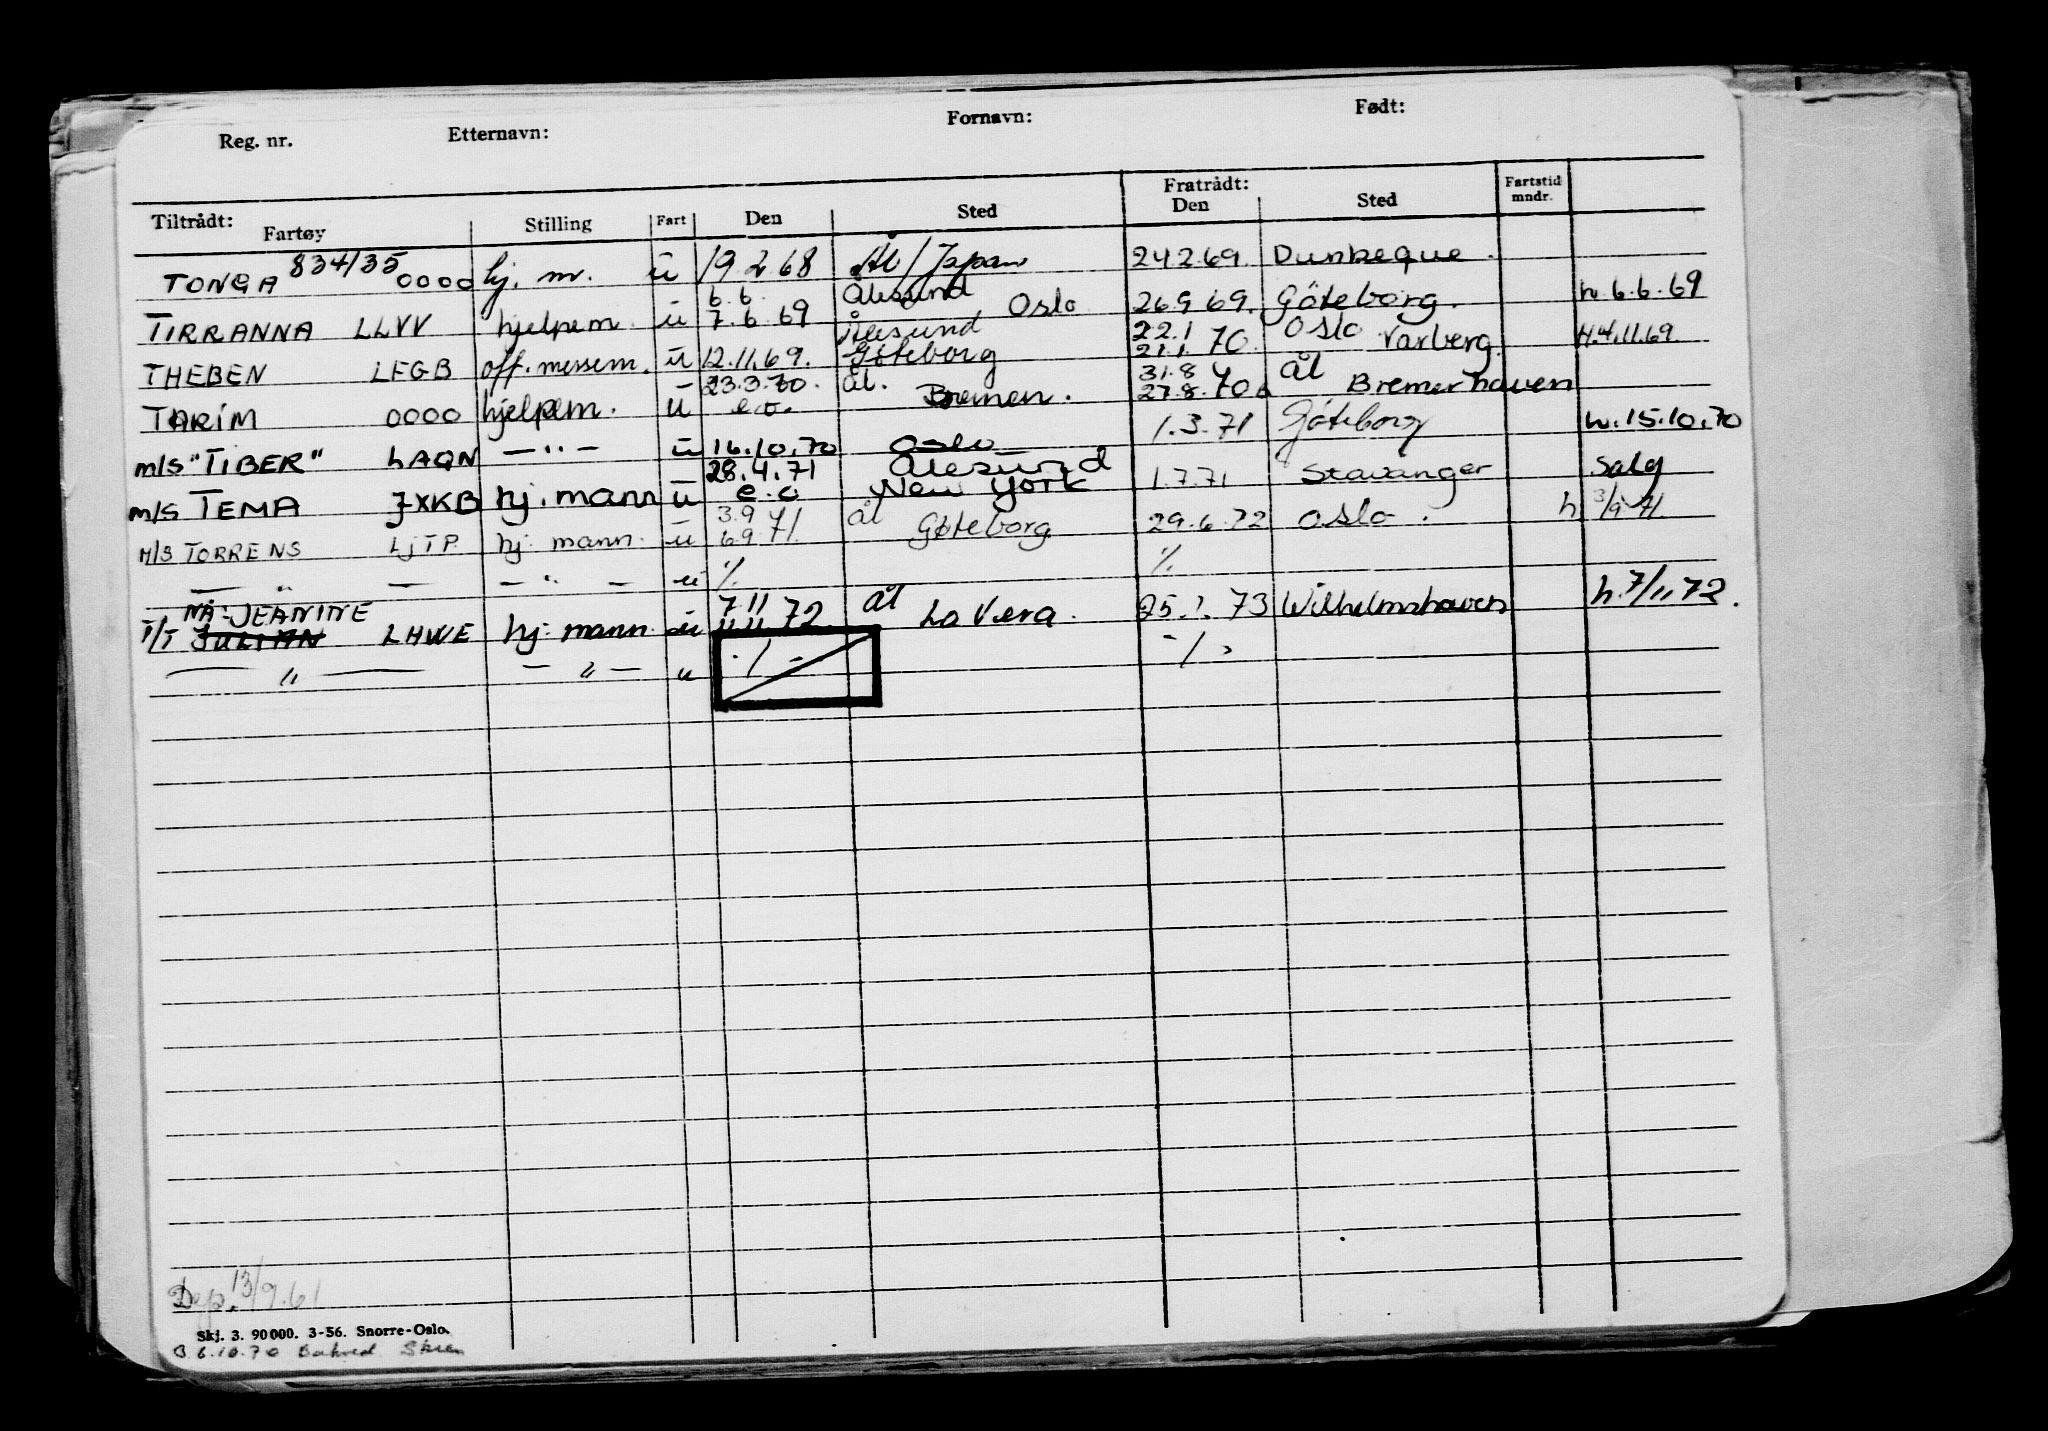 Reg. nr. Etternavn: Fornavn: Født:
Tiltrådt: Fratrådt:
Fartøy Stilling Fart Den Sted Den Sted Fartstid mndr.
TONGA 834/35 0000 hj. m. u 19.2.68 Ål/Japan 24.2.69. Dunkeque.
6.6. Ålesund
TIRRANNA LLVV hjelpem. u 7.6.69 Oslo 26.9.69. Göteborg. h. 6.6.69
Ålesund 22.1 Oslo
THEBEN LFGB off. messem. u 12.11.69. Göteborg 21.1.70. Varberg. H.4.11.69
23.3.70. ål. 31.8 ål
TARIM 0000 hjelpem. u e.o. Bremen. 27.8.70 Bremerhaven
m/s "TIBER" LAQN —"— u 16.10.70 Oslo 1.3.71 Göteborg h. 15.10.70
28.4.71 Ålesund
m/s TEMA JXKB hj. mann u e.o New York 1.7.71 Stavanger salg
3.9 ål
M/S TORRENS LJTP. hj. mann. u 6.9.71. Gøteborg 29.6.72 Oslo. h 3/9-71.
— " — — " — u % %
NÅ: JEANINE 7.11 ål
T/T JULIAN LHWE hj. mann u 11.11.72. La Vera. 25.1.73 Wilhelmshaven h. 7/11 72.
— " — — " — u ·/- -/-
Dep. 13/9.61
Skj. 3. 90000. 3-56. Snorre-Oslo.
6.10.70 Skien